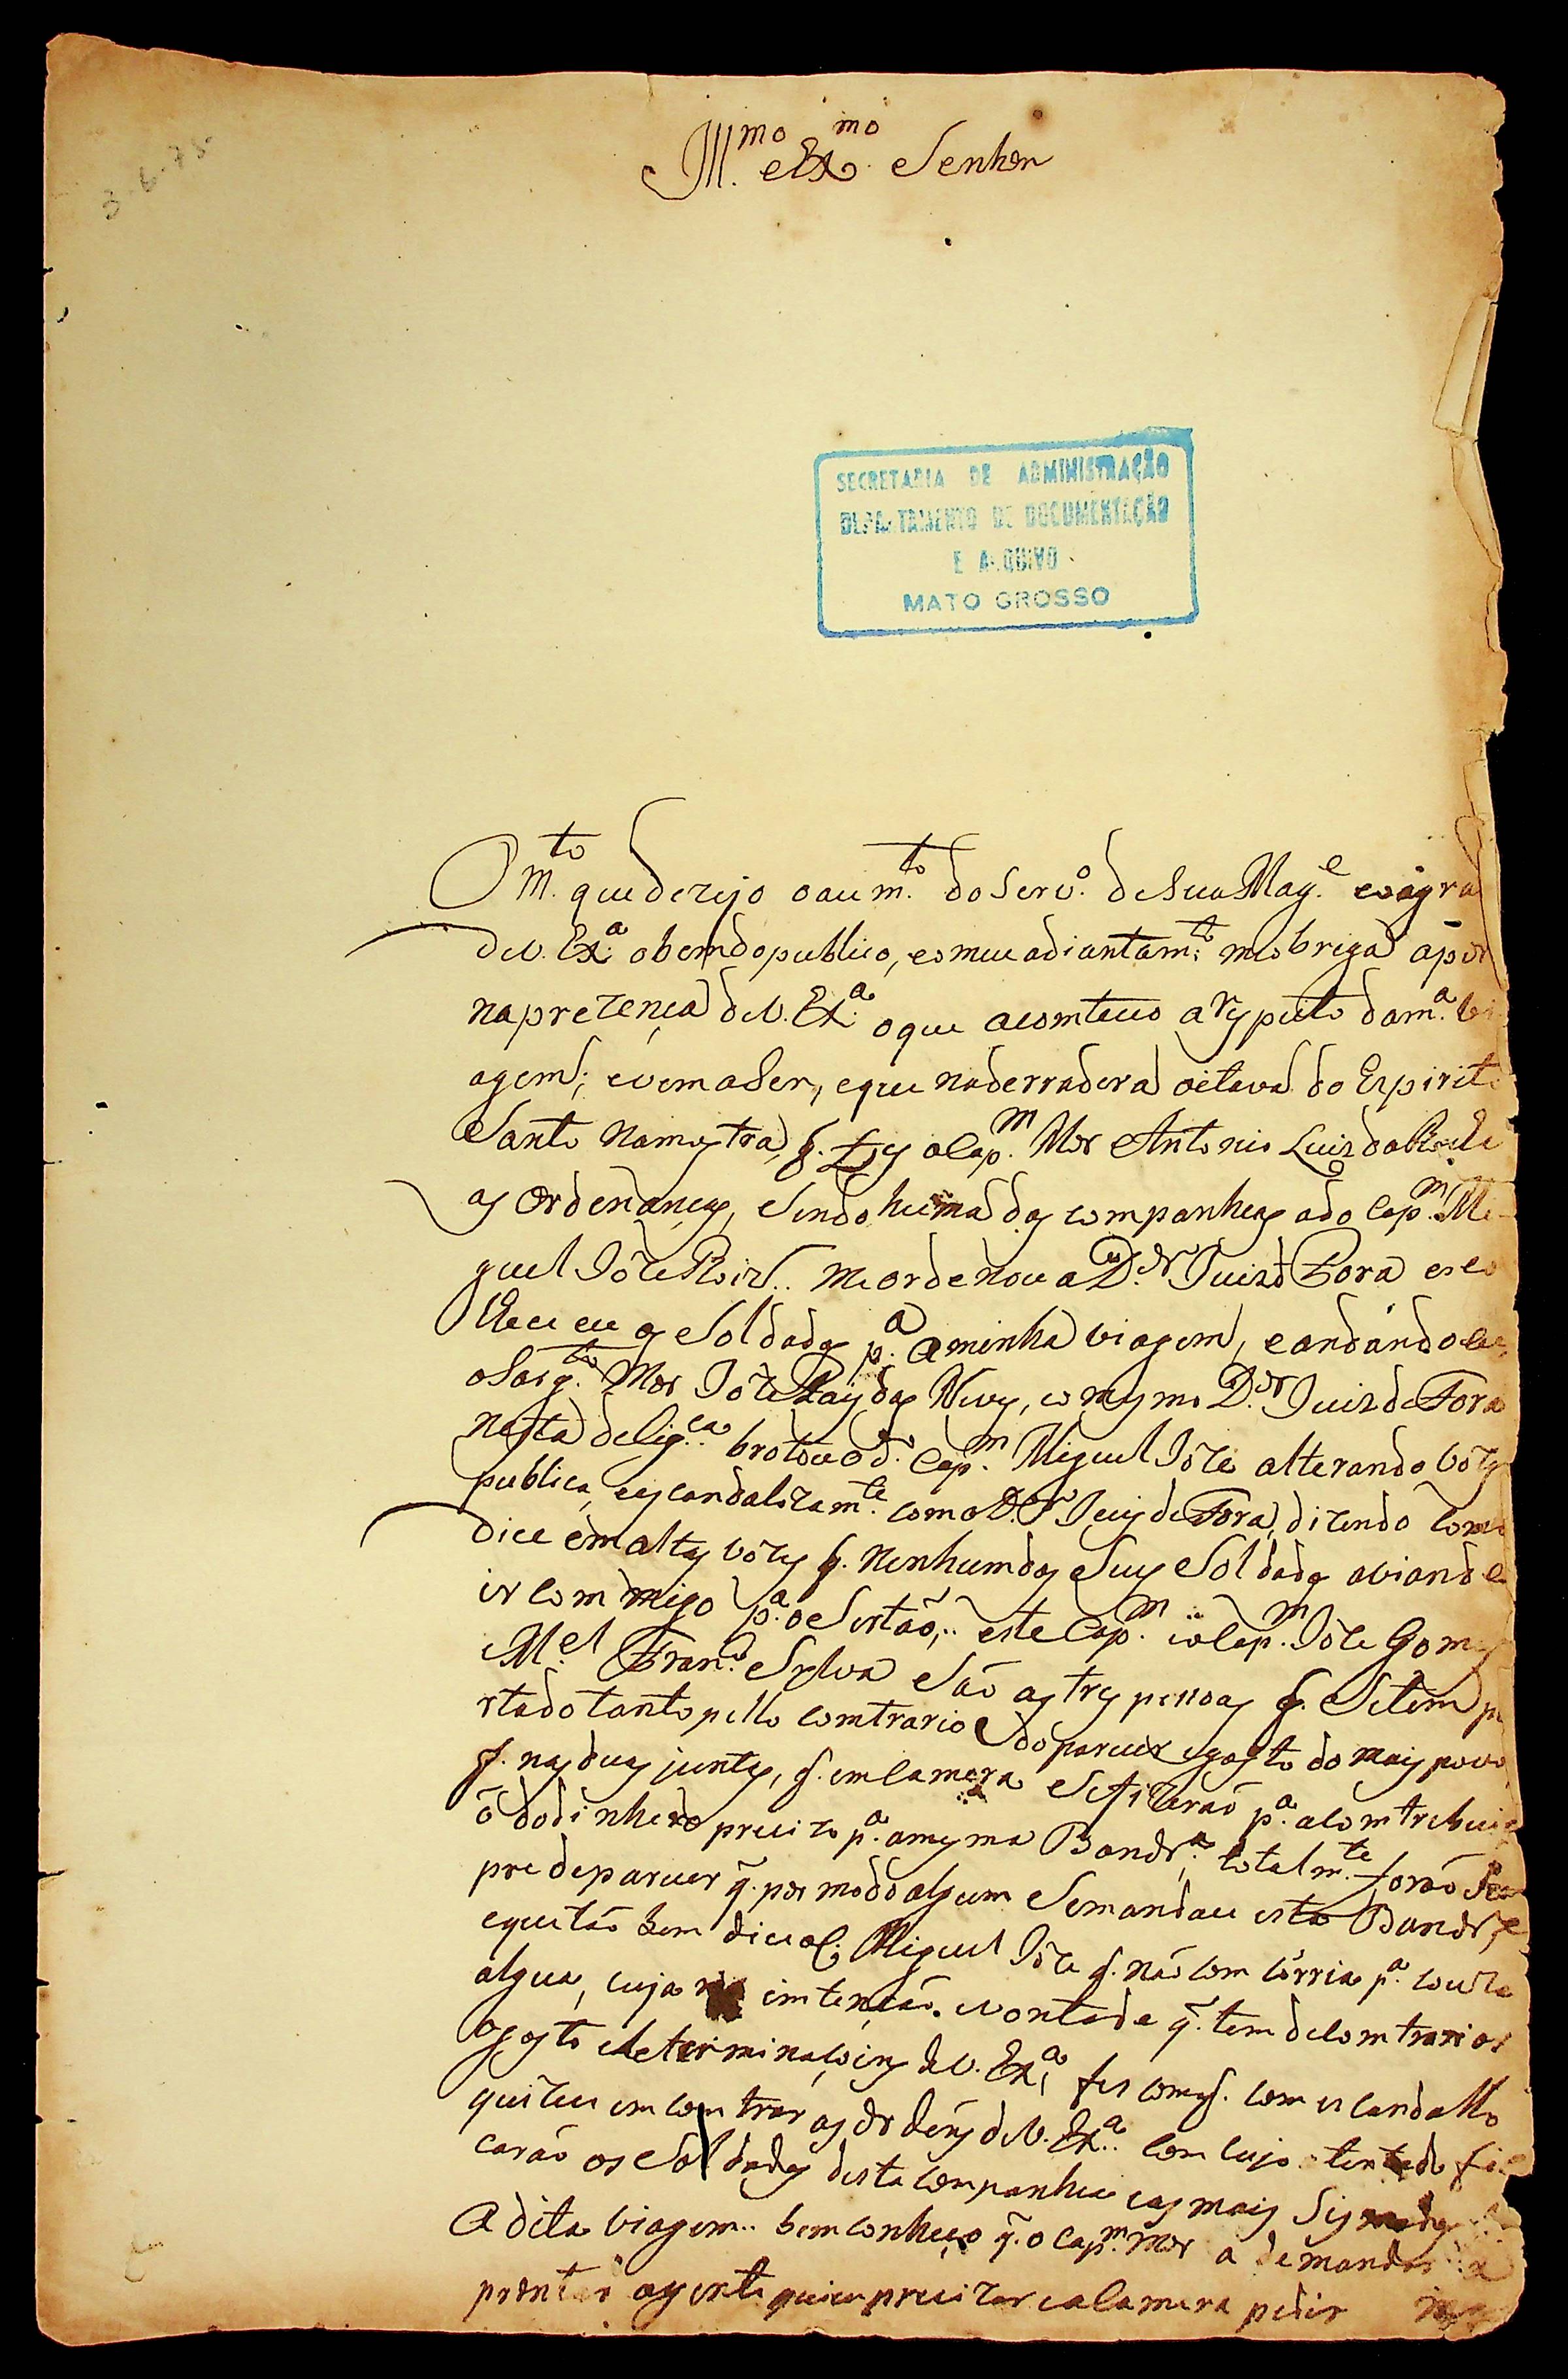 3-6-75
Ill.mo e Ex.mo Senhor
SECRETARIA DE ADMINISTRAÇÃO
DEPARTAMENTO DE DOCUMENTAÇÃO
E ARQUIVO
MATO GROSSO
O m.to que dezejo o aum.to do Serv.o de Sua Mag.e e o agra
de V. Ex.a o bem do publico, e o meu adiantam.to me obriga a por
na prezença de V. Ex.a o que acomteceo a respeito da m.a vi
agem; e vem a Ser, e que na derradera oitava do Espirito
Santo na mostra, q. fes o Cap.m Mor Antonio Luis da Rocha
as Ordenanças, Sendo huma das companheas a do Cap.m Mi-
guel Joze Roiz.. me ordenou o D.or Juis de Fora esco
lhece eu os Soldados p.a a minha viagem, e andando
o Sarg.to Mor Joze Pais das Neves, e o mesmo D.or Juis de Fora
nesta delig.ca brotou o d.o Cap.m Miguel Joze alterando vozes
publica, escandalizam.te com o D.or Juis de Fora, dizendo como
dice em altas vozes q. nenhum dos Seus Soldados avian de
ir com migo p.a o Sertão,.. este Cap.m e o Cap.m Joze Gomes
M.el Fran.co Sylva São as tres pessoas q. Se tem po
rtado tanto pello comtrario do parecer e gosto do mais povo
q. nas duas juntas, q. em camera Se fizerão p.a a comtrebuiç
ão do dinhero precizo p.a a mesma Bandr.a, total m.te forão Sem
pre de parecer q. por modo algum Se mandace esta Bandr.a
e que tão bem dice o C. Miguel Joze q. não com corria p.a couza
algua, cuja imtenção. e vontade q. tem de comtrariar
o gosto e determinaçoins de V. Ex.a, fes com q. com escandallo
quizece em comtrar as Ordens de V. Ex.a.. com cujo fi
carão os Soldados desta companhea e as mais
A dita viagem.. bem conheço q. o Cap.m Mor a de mandar
prontar a gente que eu precizar e a camera pedir